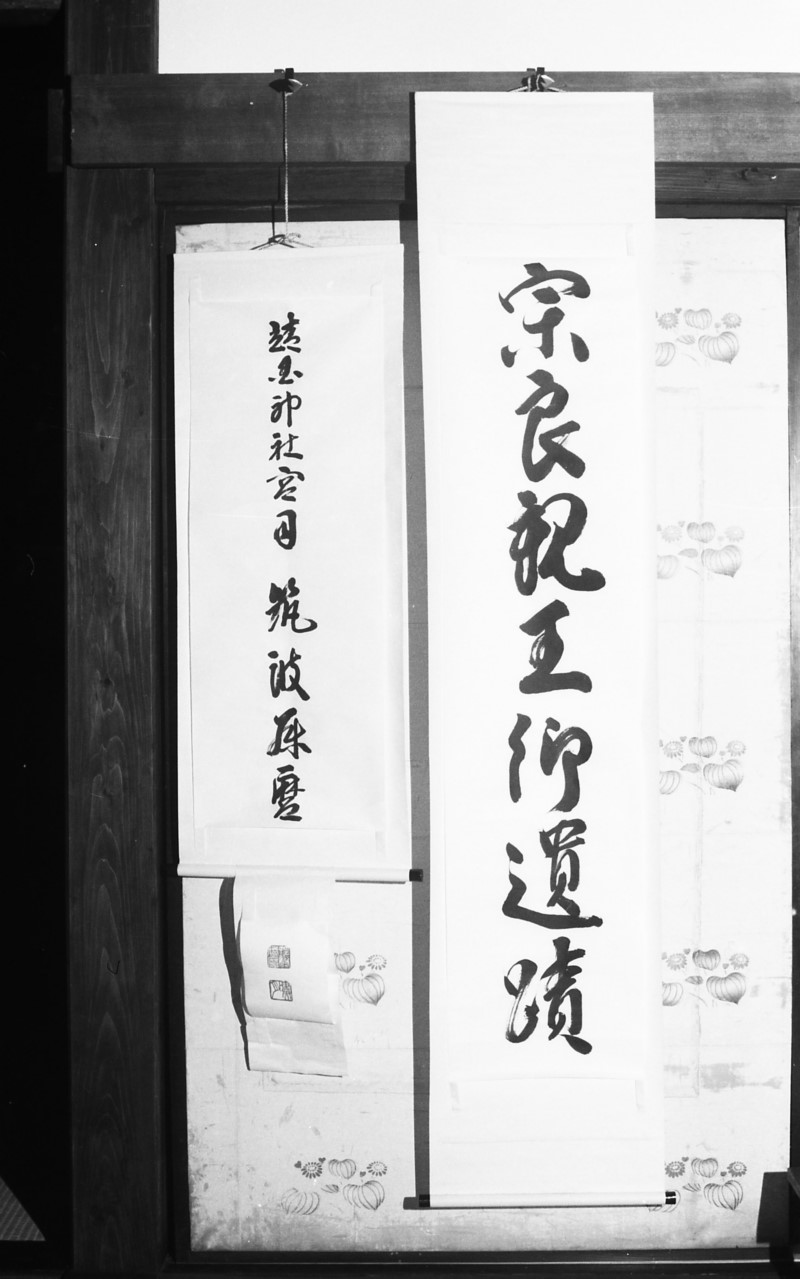 宗良親王御遺蹟
靖国神社宮司 筑波藤麿